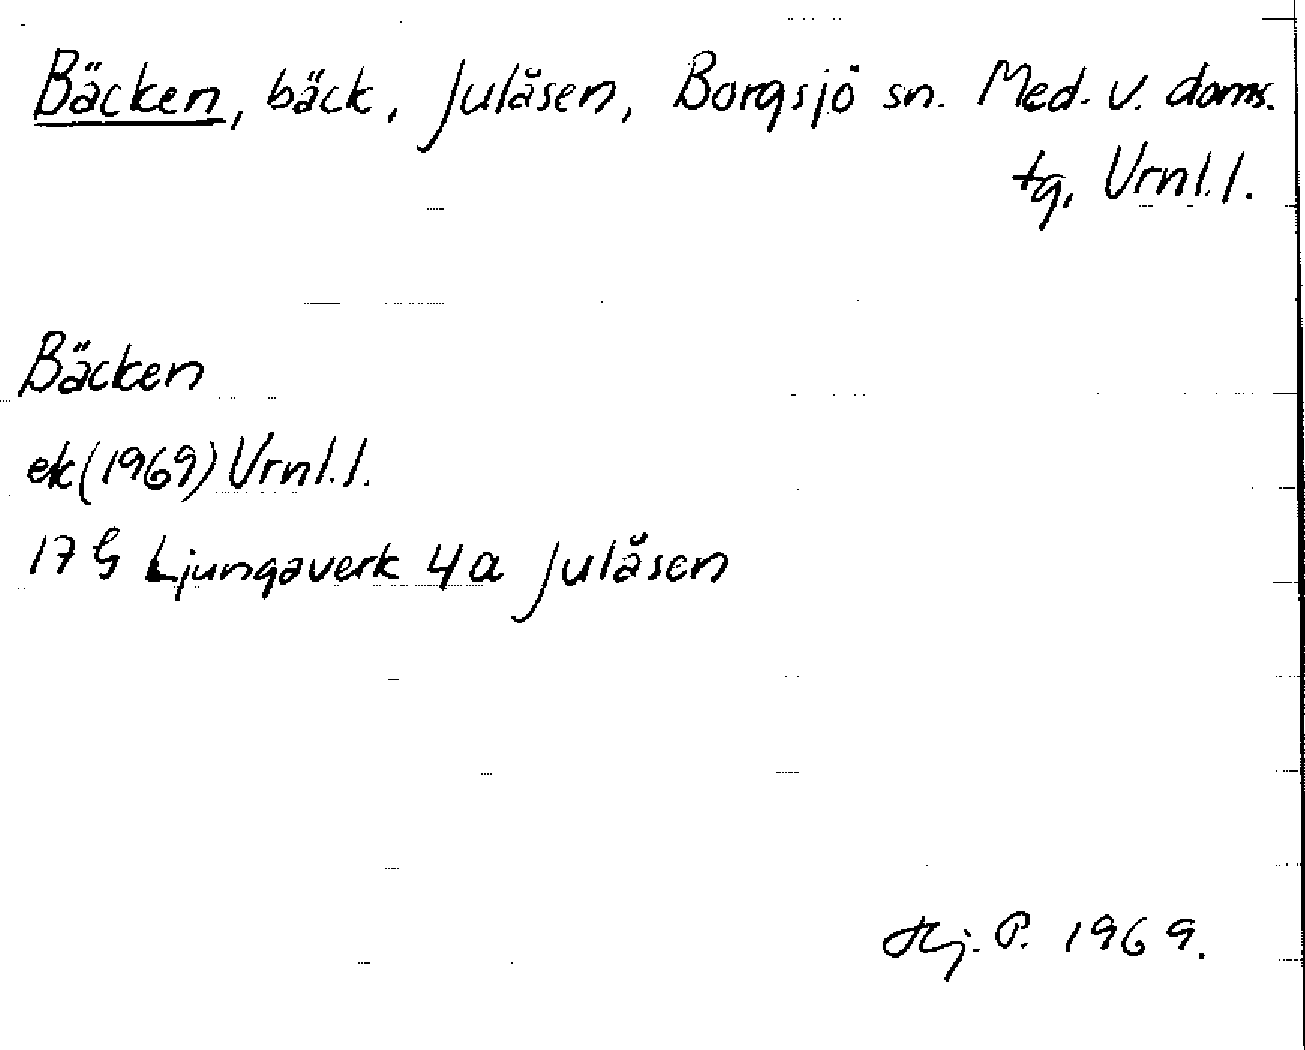 Bäcken, bäck, Julåsen, Borgsjö sn. Med. v. doms.
tg, Vrnl.l.
Bäcken
ek (1969) Vrnl.l.
17 G Ljungaverk 4a Julåsen
Hj. P. 1969.